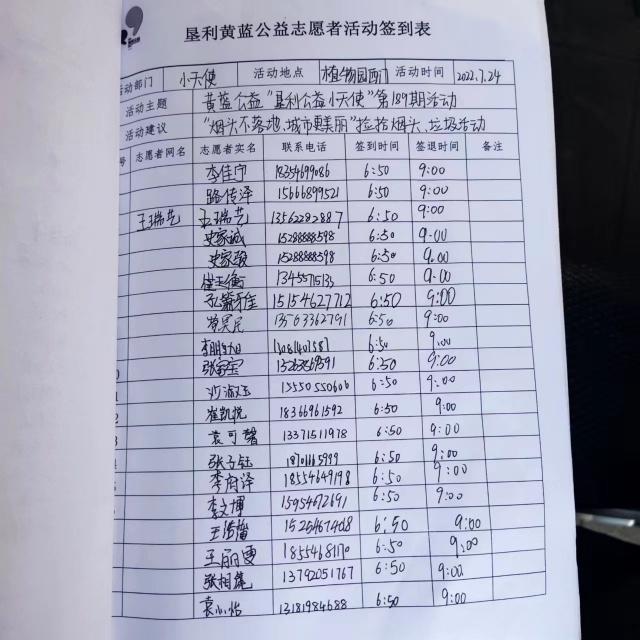 垦利黄蓝公益志愿者活动签到表
活动部门 小天使 活动地点 植物园西门 活动时间 2022.7.24
活动主题 黄蓝公益“垦利公益小天使”第189期活动
活动建议 “烟头不落地、城市更美丽”捡拾烟头、垃圾活动
号 志愿者网名 志愿者实名 联系电话 签到时间 签退时间 备注
李佳宁 18354699086 6:50 9:00
路传泽 15666899521 6:50 9:00
王瑞艺 王瑞艺 13562282887 6:50 9:00
史家诚 15288888598 6:50 9:00
史家骏 15288888598 6:50 9:00
崔玉衡 6:50 9:00
15154627712 6:50 9:00
13563362791 6:50 9:00
6:50 9:00
张家宝 6:50 9:00
沙淑玉 15550550606 6:50 9:00
崔凯悦 18366961592 6:50 9:00
袁可馨 13371511978 6:50 9:00
张子钰 6:50 9:00
李府泽 18554649198 6:50 9:00
李文博 15954672691 6:50 9:00
6:50 9:00
王丽雯 18554681170 6:50 9:00
13792051767 6:50 9:00
袁小怡 13181984688 6:50 9:00